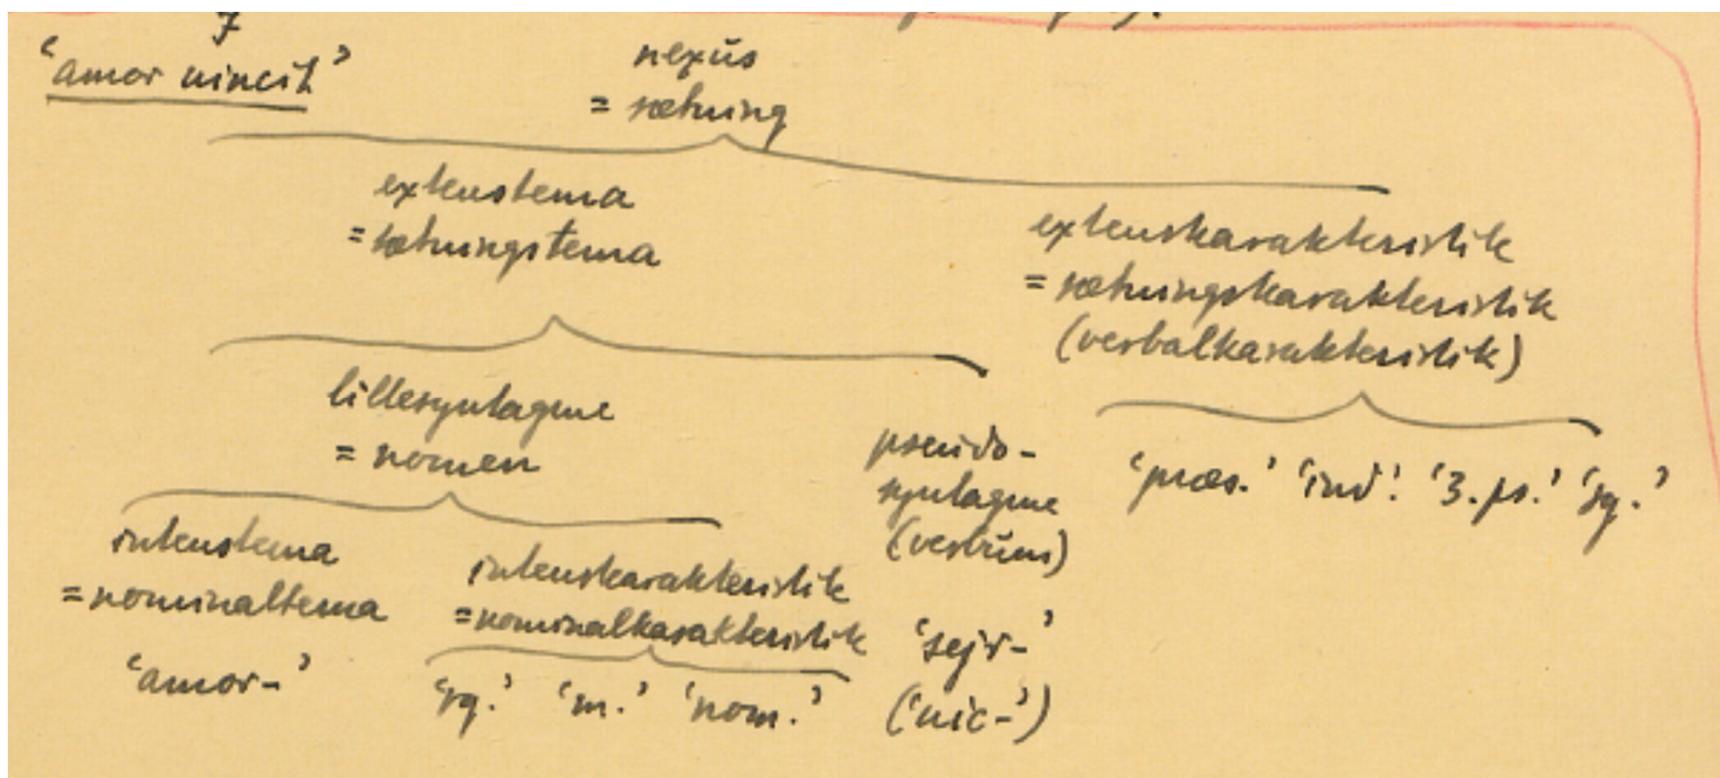 7
‘amor vincit’
nexus
= sætning
extenstema
= sætningstema
extenskarakteristik
= sætningskarakteristik
(verbalkarakteristik)
lillesyntagme
= nomen
pseudo-
syntagme
(verbum)
‘præs.’ ‘ind’. ‘3.ps.’ ‘sg.’
intenstema
= nominaltema
intenskarakteristik
= nominalkarakteristik
‘amor-’
‘sg.’ ‘m.’ ‘nom.’
‘sejr-’
(‘vic-’)